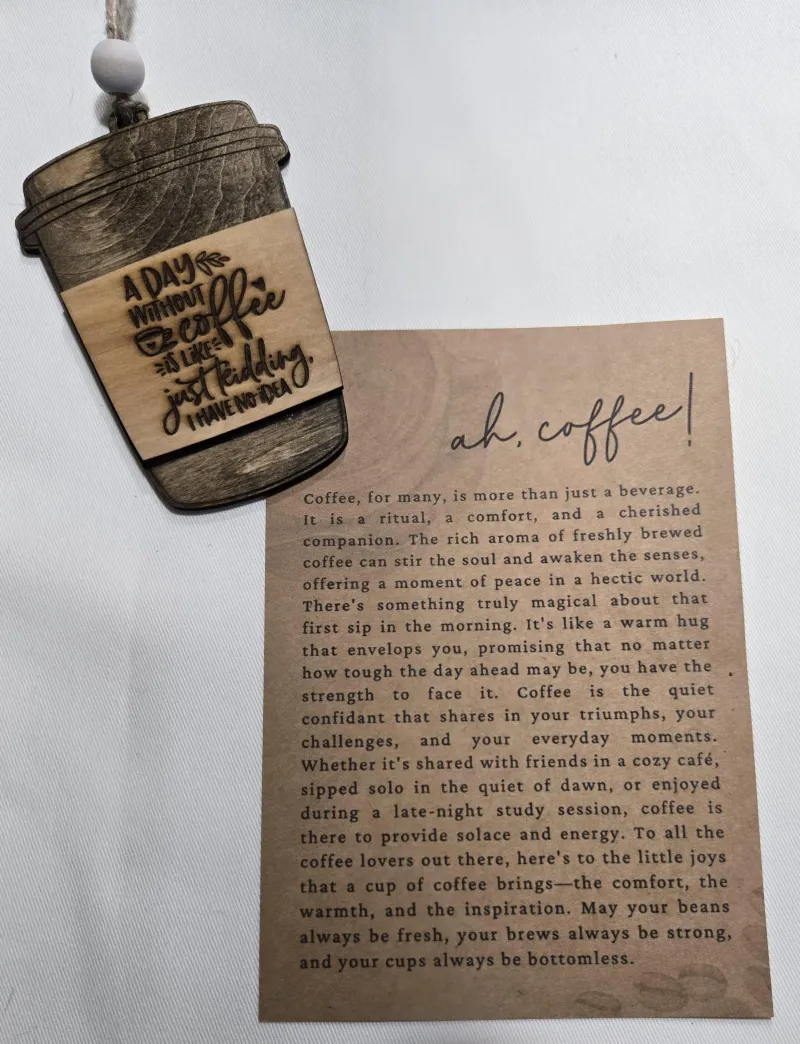 A DAY
WITHOUT
coffee
IS LIKE
just kidding,
I HAVE NO IDEA
ah, coffee!
Coffee, for many, is more than just a beverage.
It is a ritual, a comfort, and a cherished
companion. The rich aroma of freshly brewed
coffee can stir the soul and awaken the senses,
offering a moment of peace in a hectic world.
There's something truly magical about that
first sip in the morning. It's like a warm hug
that envelops you, promising that no matter
how tough the day ahead may be, you have the
strength to face it. Coffee is the quiet
confidant that shares in your triumphs, your
challenges, and your everyday moments.
Whether it's shared with friends in a cozy café,
sipped solo in the quiet of dawn, or enjoyed
during a late-night study session, coffee is
there to provide solace and energy. To all the
coffee lovers out there, here's to the little joys
that a cup of coffee brings—the comfort, the
warmth, and the inspiration. May your beans
always be fresh, your brews always be strong,
and your cups always be bottomless.